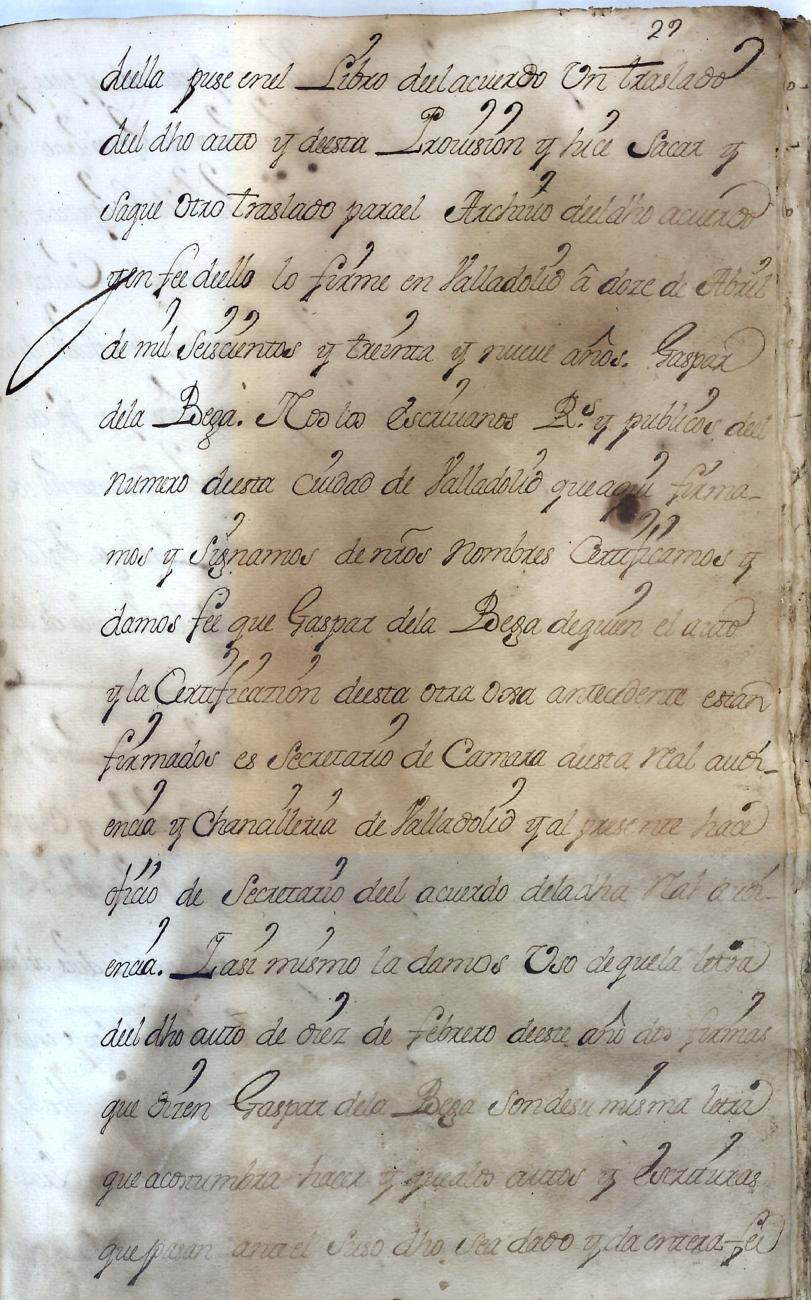 29
deella puse enel Libro deel acuerdo Un traslado
deel dho auto y deesta Provision y hice Sacar y
saque otro traslado parael Archivo deel dho acuerdo
y en fee deello lo firme en Valladolid â doze de Abril
de mil Seiscientos y treinta y nueve años. Gaspar
dela Bega. Nos los Escriuanos R.s y publicos deel
Numero deesta Ciudad de Valladolid que aqui firma-
mos y Signamos de nrõs Nombres Certificamos y
damos fee que Gaspar dela Bega dequien el auto
y la Certificazion deesta otra antecedente estan
firmados es Secretario de Camara deesta Real audi-
encia y Chancilleria de Valladolid y al presente hace
oficio de Secretario deel acuerdo deladha Real audi-
encia. Iasi mismo la damos de quela letra
deel dho auto de diez de febrero deeste año firmas
que dizen Gaspar dela Bega son desu misma letra
que acostumbra hacer y quealos autos y Escrituras
que pasan antel Suso dho sea dado y da entera fee